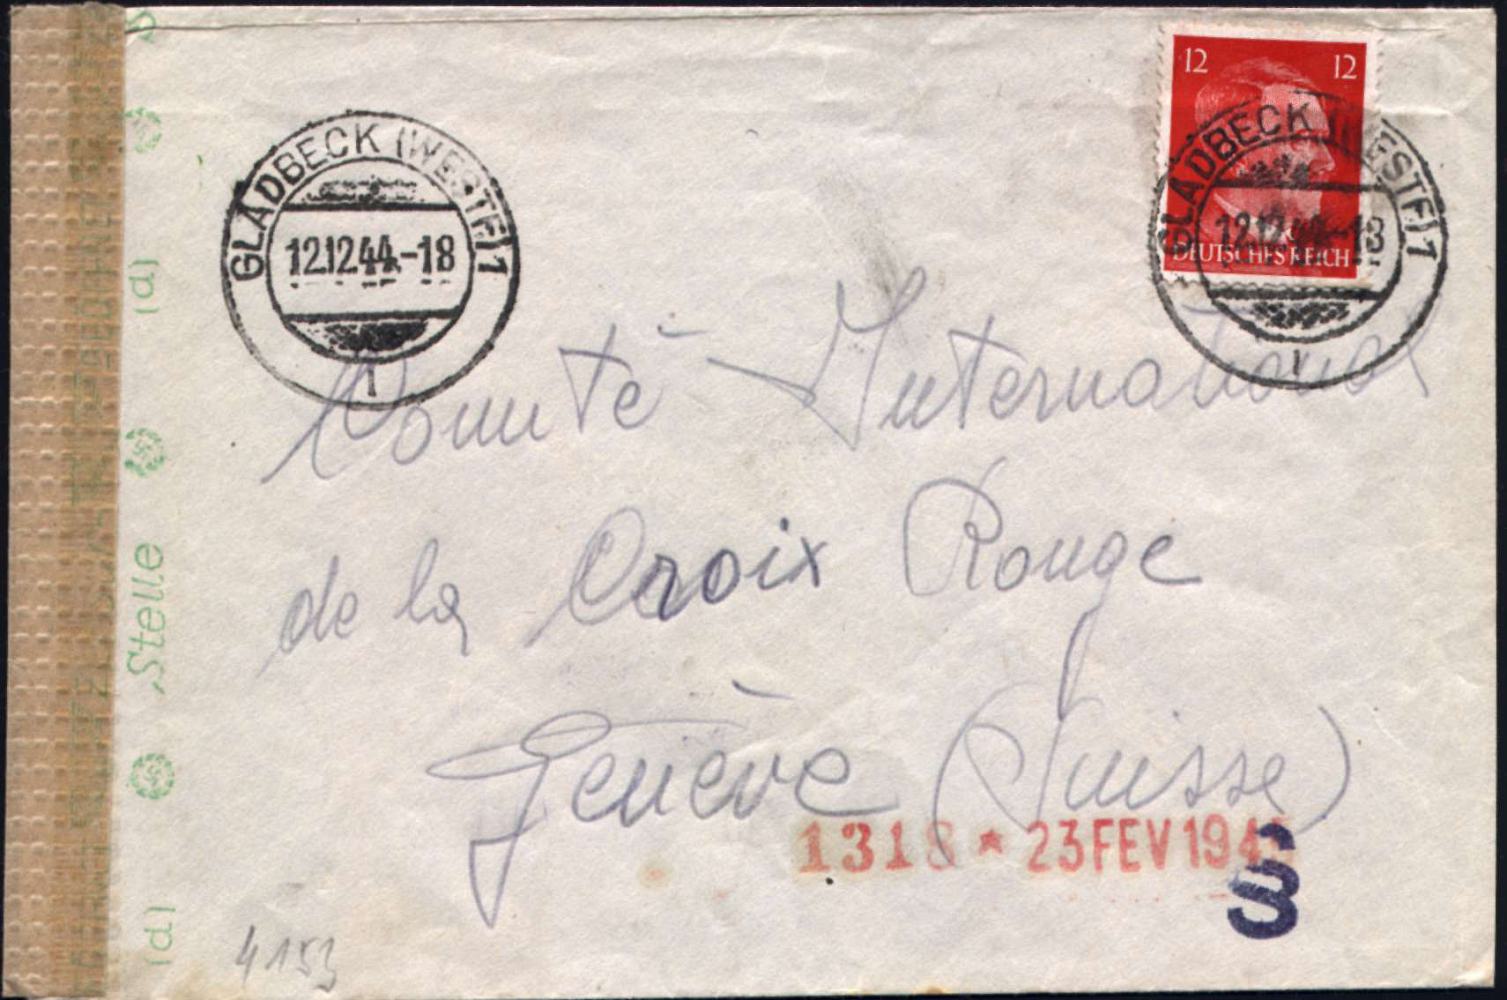 12 12
DEUTSCHES REICH
GLADBECK (WESTF) 1
12.12.44.-18
l
GLADBECK (WESTF) 1
12.12.44.-18
l
Comité International
de la Croix Rouge
Genève (Suisse)
1318 * 23 FEV 1945
4153
(d)
Stelle
(d)